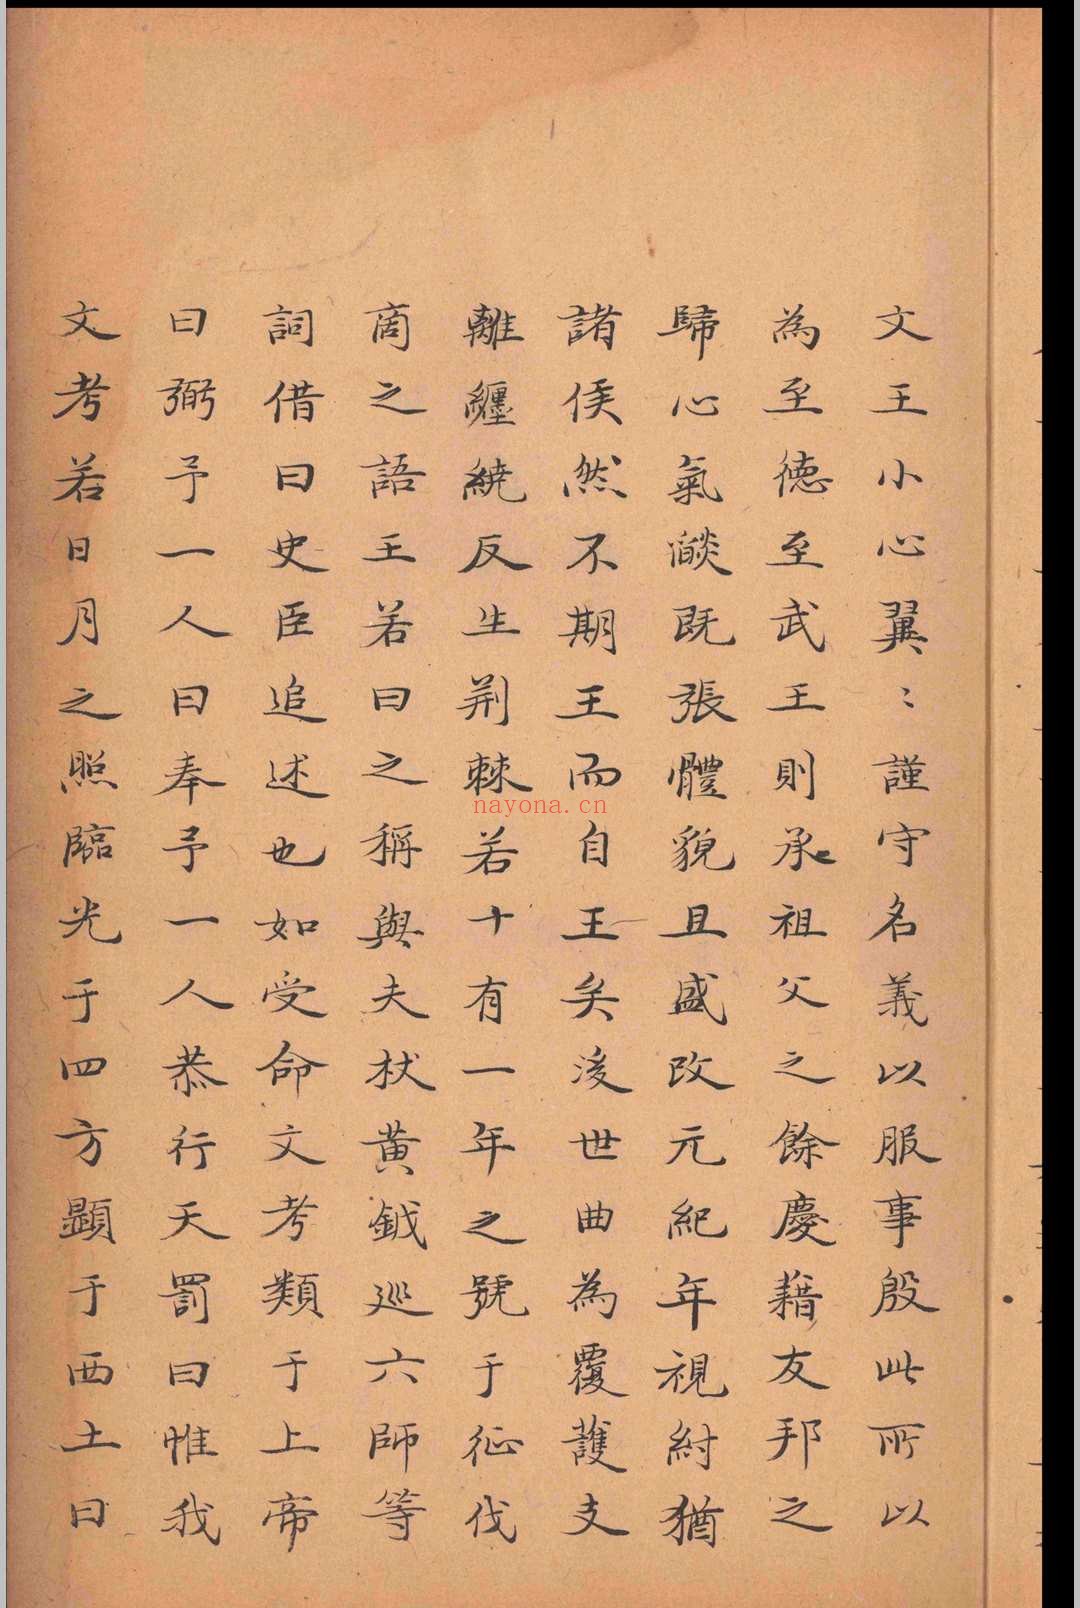 文王小心翼〻謹守名義以服事殷此所以
為至德至武王則承祖父之餘慶藉友邦之
歸心氣燄既張體貌且盛改元紀年視紂猶
諸侯然不期王而自王矣後世曲為覆護支
離纏繞反生荆棘若十有一年之號于征伐
商之語王若曰之稱與夫杖黃鉞巡六師等
詞借曰史臣追述也如受命文考類于上帝
曰弼予一人曰奉予一人恭行天罰曰惟我
文考若日月之照臨光于四方顯于西土曰
nayona.cn